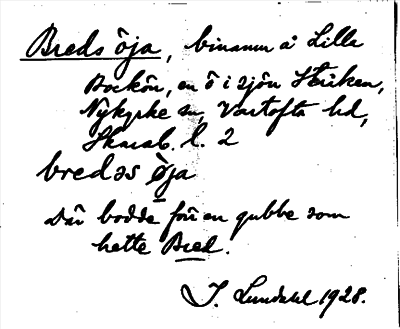 Breds öja, binamn å Lilla
Bockön, en ö i sjön Stråken,
Nykyrke sn, Vartofta hd,
Skarab. l. 2
bredəs øja
Där bodde förr en gubbe som
hette Bred.
I. Lundahl 1928.